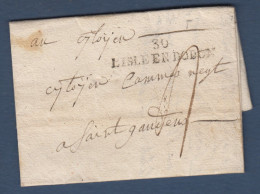 au Citoyen
30
LISLE EN DODON
Citoyen Cammas neyt
a Saint gaudens